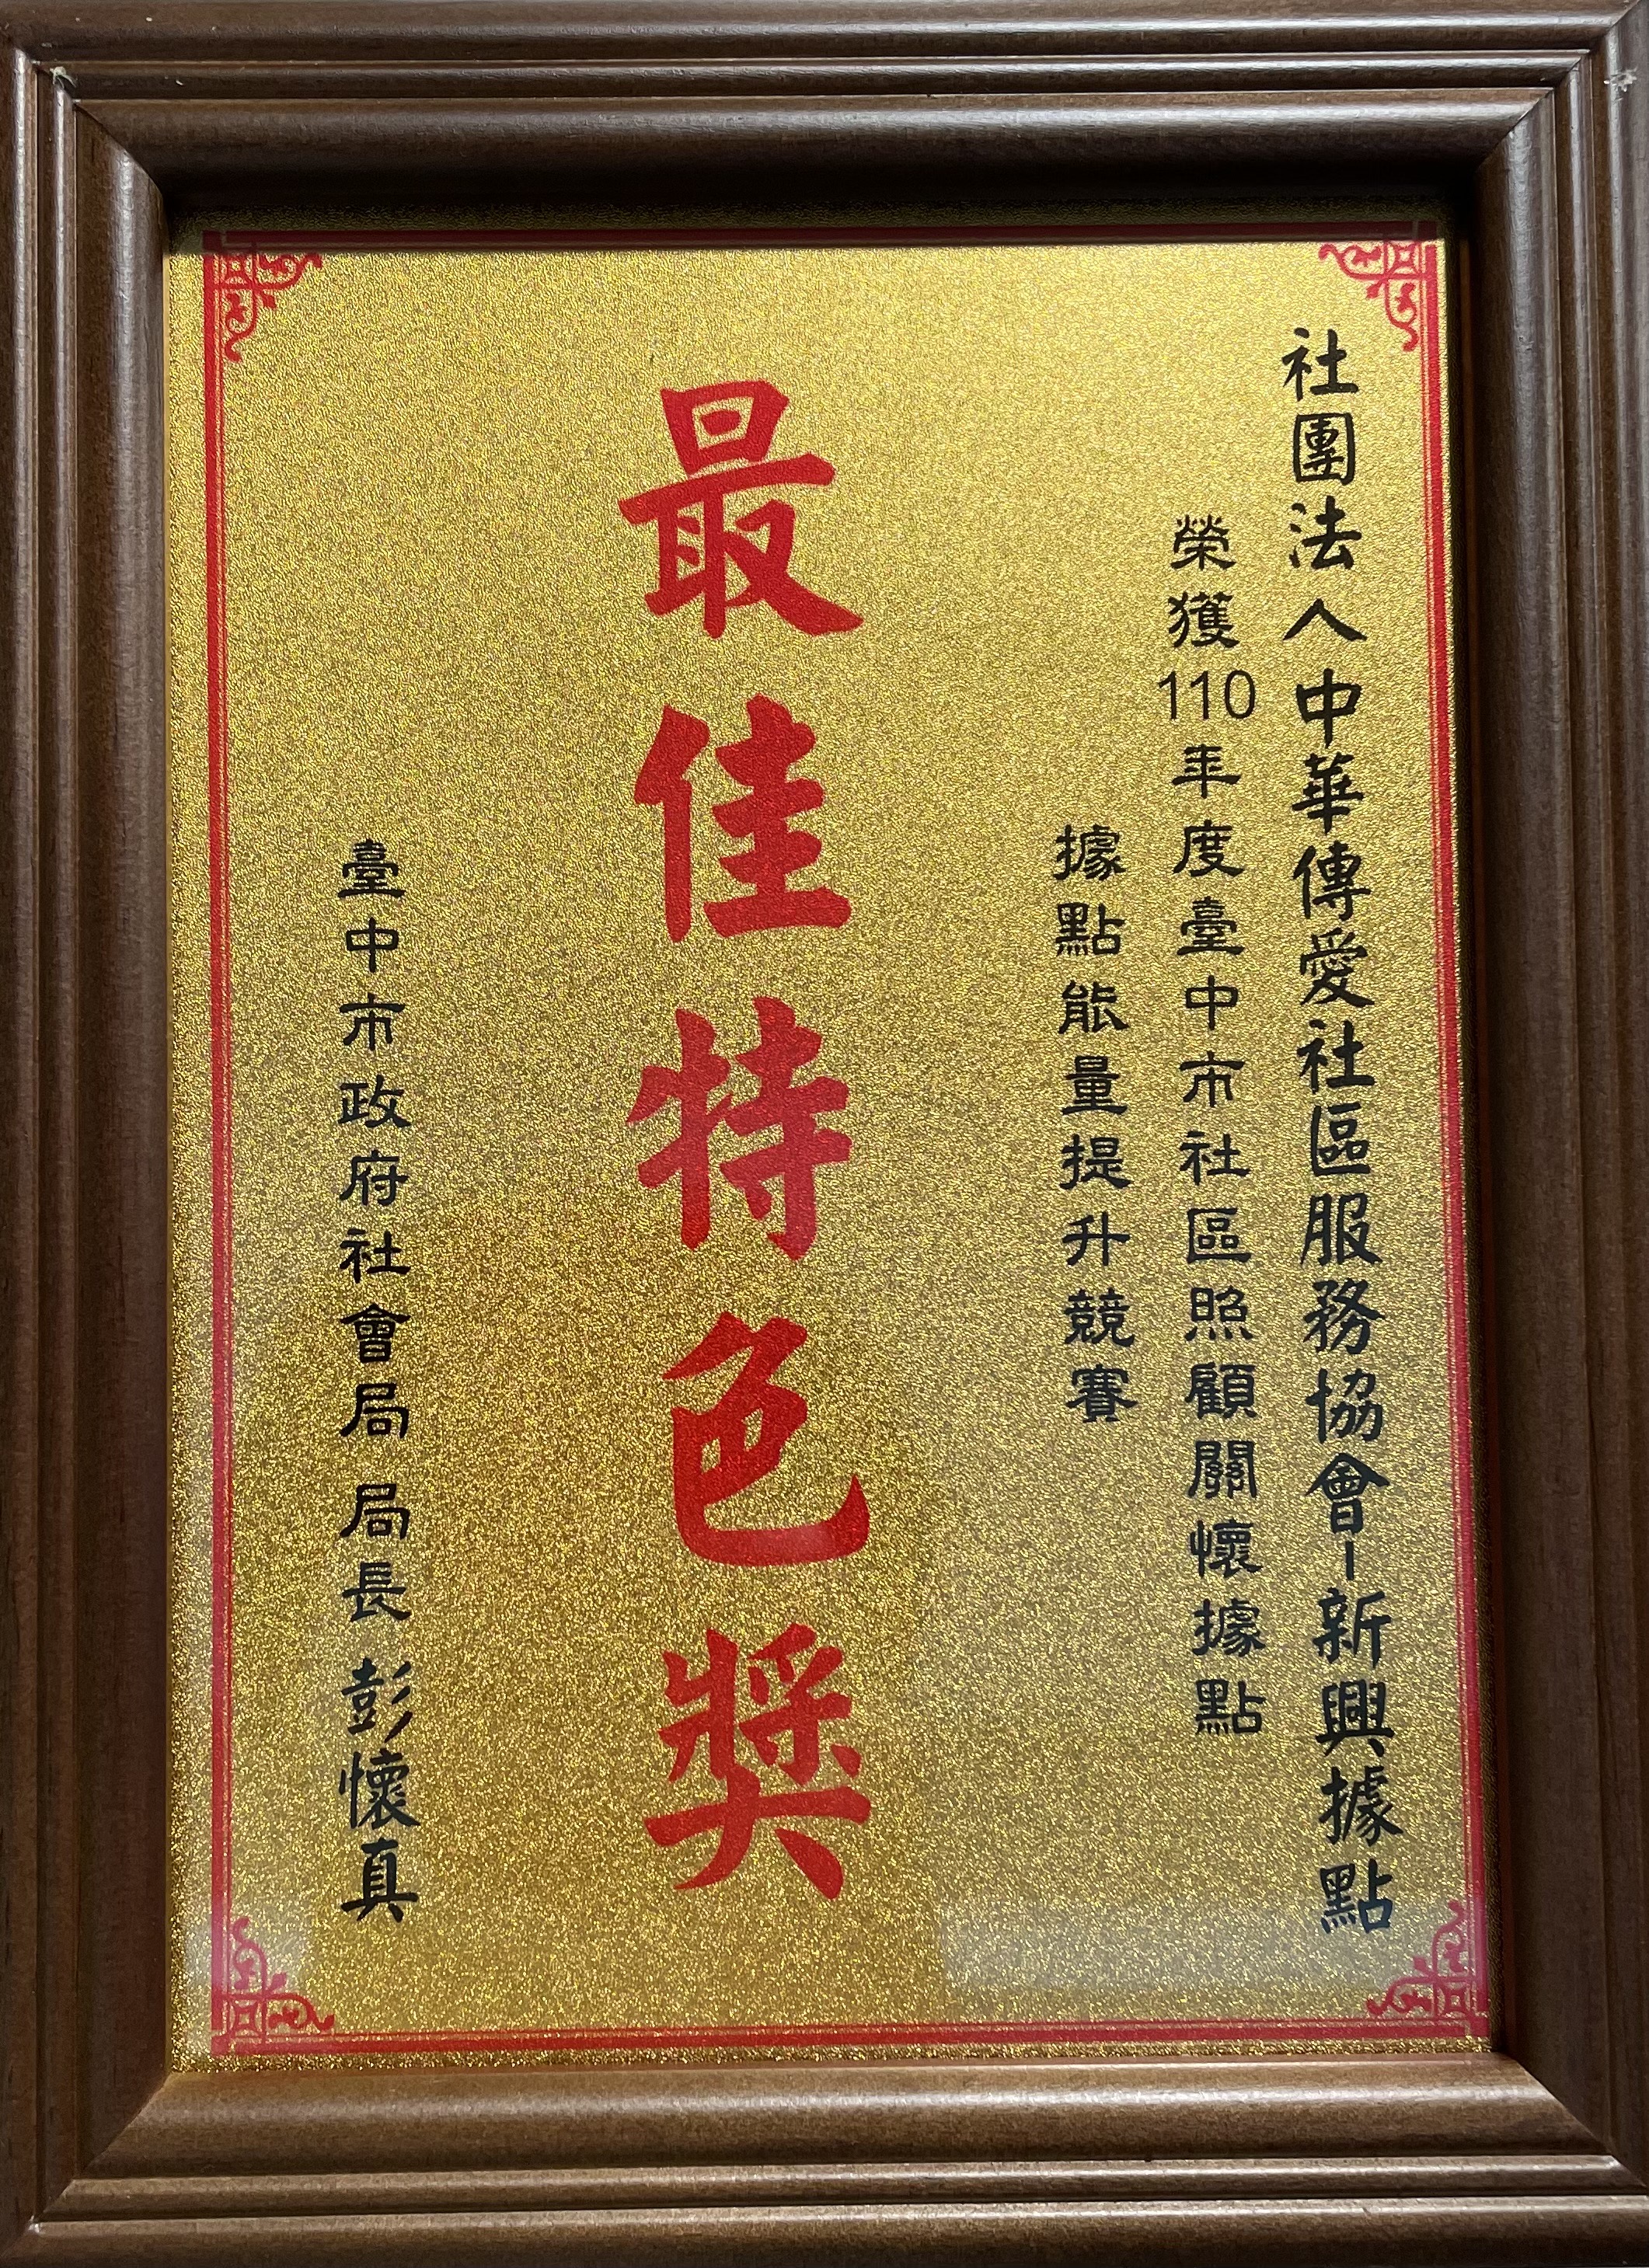 社團法人中華傳愛社區服務協會-新興據點
榮獲110年度臺中市社區照顧關懷據點
據點能量提升競賽
最佳特色獎
臺中市政府社會局 局長 彭懷真